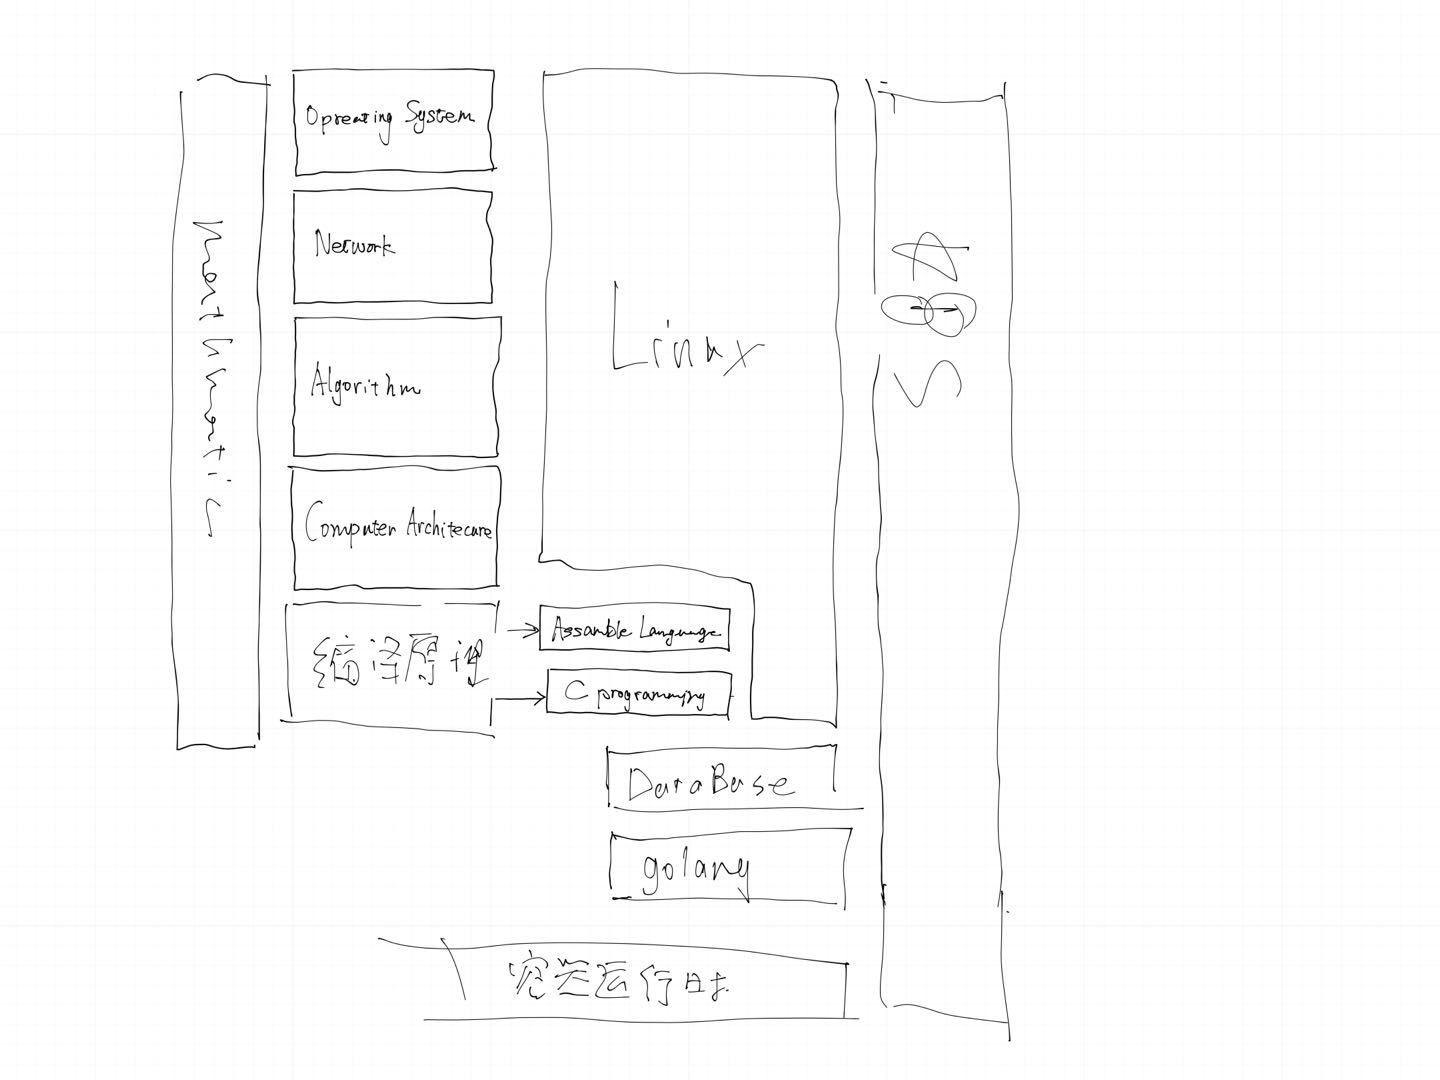 Opreating System
Network
Algorithm
Computer Architecure
编译原理
Assamble Language
C programming
Linux
DataBase
golang
容器运行时